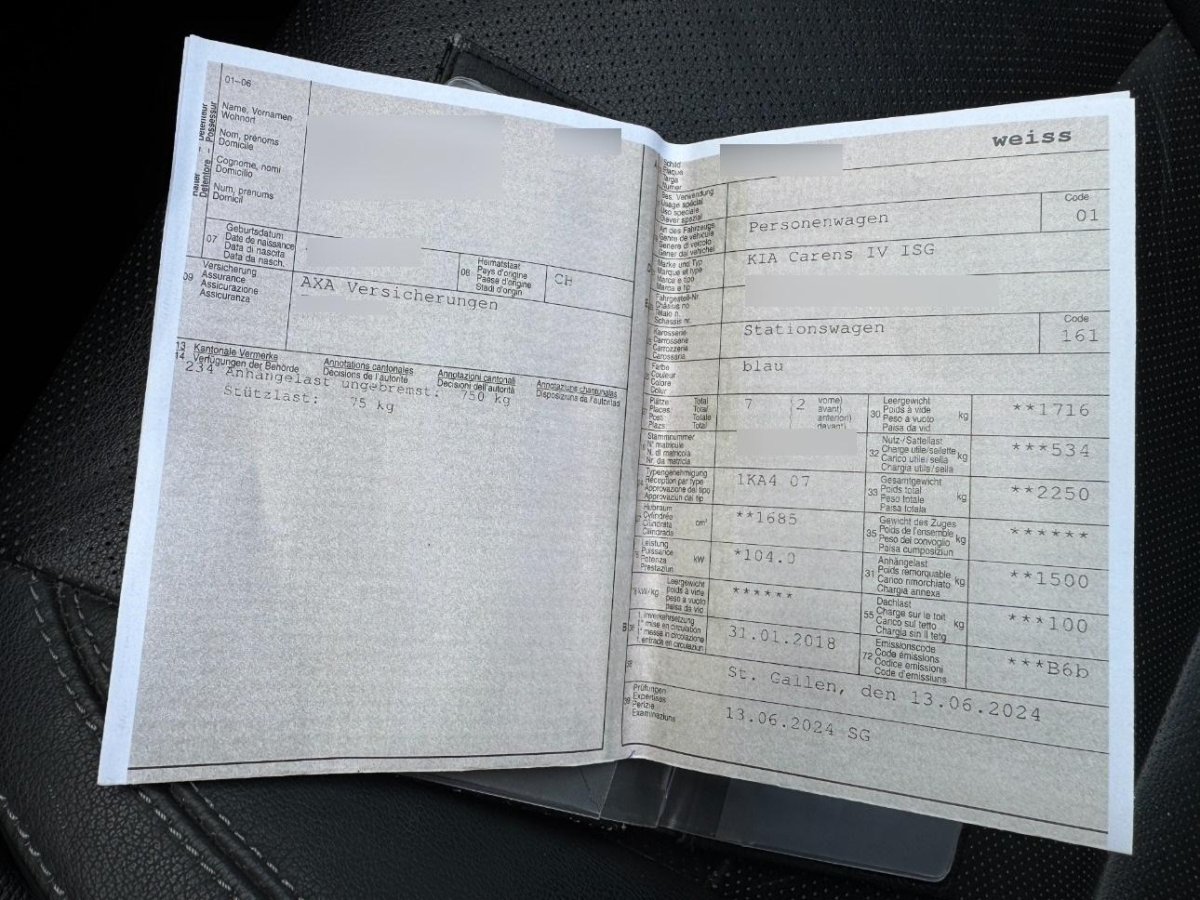 01–06
Name, Vornamen
Wohnort
Nom, prénoms
Domicile
Cognome, nomi
Domicilio
Num, prenums
Domicil
Détenteur
Possessur
Detentore
07
Geburtsdatum
Date de naissance
Data di nascita
Data da nasch.
08
Heimatstaat
Pays d'origine
Paese d'origine
Stadi d'origin
CH
09
Versicherung
Assurance
Assicurazione
Assicuranza
AXA Versicherungen
13 Kantonale Vermerke
14 Verfügungen der Behörde
Annotations cantonales
Décisions de l'autorité
Annotazioni cantonali
Decisioni dell'autorità
Annotaziuns chantunalas
Disposiziuns da l'autoritad
234 Anhängelast ungebremst: 750 kg
Stützlast: 75 kg
weiss
Schild
Plaque
Targa
Numer
Bes. Verwendung
Usage spécial
Uso speciale
Diever spezial
Art des Fahrzeugs
Genre de véhicule
Genere di veicolo
Gener dal vehichel
Personenwagen
Code
01
Marke und Typ
Marque et type
Marca e tipo
Marca e tip
KIA Carens IV ISG
Fahrgestell-Nr
Châssis no
Telaio n.
Schassis nr.
Karosserie
Carrosserie
Carrozzeria
Carossaria
Stationswagen
Code
161
Farbe
Couleur
Colore
Colur
blau
Plätze Total
Places Total
Posti Totale
Plazs Total
7
2
vorne)
avant)
anteriori)
davant)
30
Leergewicht
Poids à vide
Peso a vuoto
Paisa da vid
kg
**1716
Stammnummer
N° matricule
N. di matricola
Nr. da matricla
32
Nutz-/Sattellast
Charge utile/sellette
Carico utile/sella
Chargia utila/sella
kg
***534
Typengenehmigung
Réception par type
Approvazione del tipo
Approvaziun dal tip
1KA4 07
33
Gesamtgewicht
Poids total
Peso totale
Paisa totala
kg
**2250
Hubraum
Cylindrée
Cilindrata
cm³
**1685
35
Gewicht des Zuges
Poids de l'ensemble
Peso del convoglio
Paisa cumposiziun
kg
******
Leistung
Puissance
Potenza
Prestaziun
kW
*104.0
31
Anhängelast
Poids remorquable
Carico rimorchiato
Chargia annexa
kg
**1500
kW/kg
Leergewicht
poids à vide
peso a vuoto
paisa da vid
******
55
Dachlast
Charge sur le toit
Carico sul tetto
Chargia sin il tetg
kg
***100
B
1. Inverkehrsetzung
1re mise en circulation
1a messa in circolazione
1. entrada en circulaziun
31.01.2018
72
Emissionscode
Code émissions
Codice emissioni
Code d'emissiuns
***B6b
38
St. Gallen, den 13.06.2024
39
Prüfungen
Expertises
Perizie
Examinaziuns
13.06.2024 SG